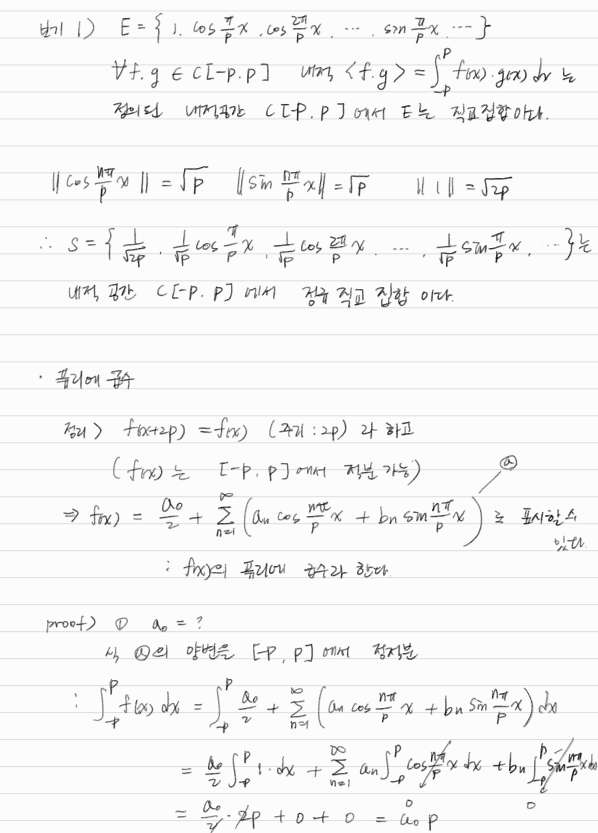 보기 1) E = { 1, cos π/p x, cos 2π/p x, ⋯ sin π/p x, ⋯ }
∀f.g ∈ C[-p.p] 내적 <f.g> = ∫_{-p}^{p} f(x)·g(x) dx 는
정의된 내적공간 C[-p.p] 에서 E는 직교집합이다.
‖cos nπ/p x‖ = √p ‖sin nπ/p x‖ = √p ‖1‖ = √2p
∴ S = { 1/√2p, 1/√p cos π/p x, 1/√p cos 2π/p x, ⋯, 1/√p sin π/p x, ⋯ }는
내적 공간 C[-p.p] 에서 정규 직교 집합 이다.
· 푸리에 급수
정리> f(x+2p) = f(x) (주기 : 2p) 라 하고
(f(x) 는 [-p, p]에서 적분가능) ⓐ
⇒ f(x) = a₀/2 + ∑_{n=1}^{∞} (aₙ cos nπ/p x + bₙ sin nπ/p x) 로 표시할 수
있다.
: f(x)의 푸리에 급수라 한다.
proof) ① a₀ = ?
식 ⓐ의 양변을 [-p, p] 에서 정적분
: ∫_{-p}^{p} f(x) dx = ∫_{-p}^{p} a₀/2 + ∑_{n=1}^{∞} (aₙ cos nπ/p x + bₙ sin nπ/p x) dx
= a₀/2 ∫_{-p}^{p} 1·dx + ∑_{n=1}^{∞} aₙ ∫_{-p}^{p} cos nπ/p x dx + bₙ ∫_{-p}^{p} sin nπ/p x dx
0 0
= a₀/2 · 2p + 0 + 0 = a₀ p